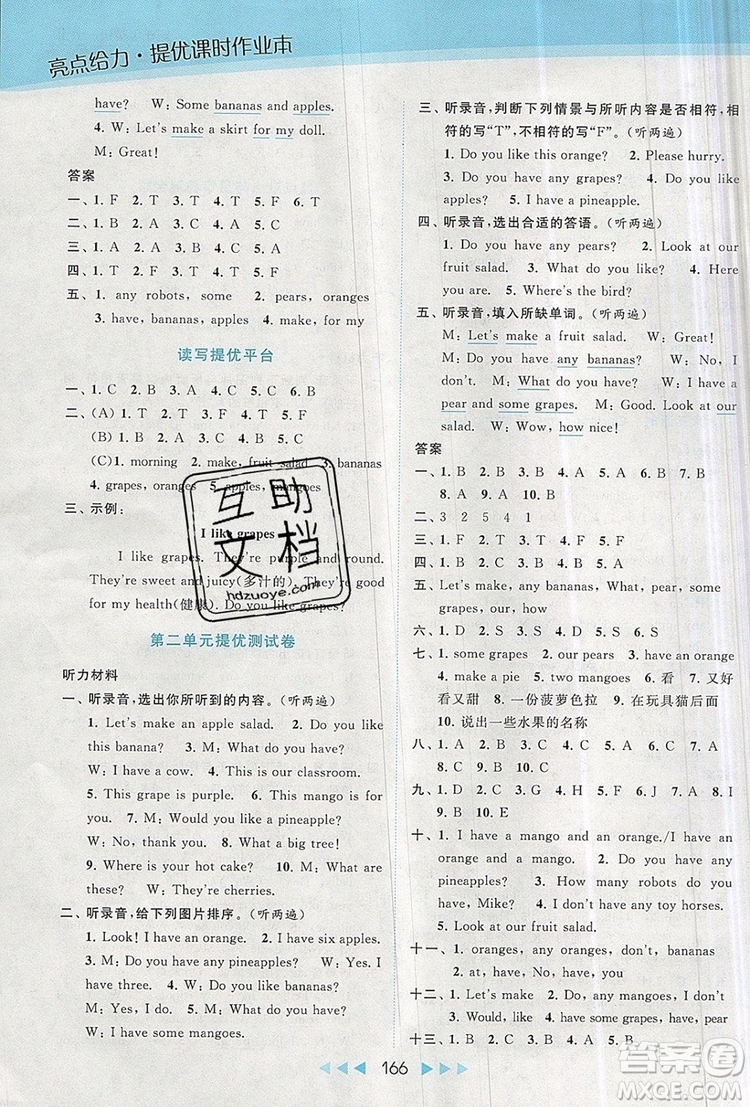 亮点给力·提优课时作业本
have? W: Some bananas and apples.
4. W: Let's make a skirt for my doll.
M: Great!
答案
一、1. F 2. T 3. T 4. T 5. F 6. T
二、1. B 2. A 3. C 4. A 5. C
三、1. A 2. C 3. A 4. B
四、1. T 2. F 3. F 4. T
五、1. any robots, some 2. pears, oranges
3. have, bananas, apples 4. make, for my
读写提优平台
一、1. C 2. B 3. B 4. C 5. C 6. B
二、(A) 1. T 2. T 3. F 4. T
(B) 1. C 2. B 3. C
(C)1. morning 2. make, fruit salad 3. bananas
4. grapes, oranges 5. mangoes, grapes
三、示例：
I like grapes
I like grapes. They're purple and round.
They're sweet and juicy(多汁的). They're good
for my health(健康). I love grapes.
第二单元提优测试卷
听力材料
一、听录音,选出你所听到的内容。(听两遍)
1. Let's make an apple salad. 2. Do you like
this banana? 3. M: What do you have?
W: I have a cow. 4. This is our classroom.
5. This grape is purple. 6. This mango is for
you. 7. M: Would you like a pineapple?
W: No, thank you. 8. What a big tree!
9. Where is your hot cake? 10. M: What are
these? W: They're cherries.
二、听录音,给下列图片排序。(听两遍)
1. Look! I have an orange. 2. I have six apples.
3. M: Do you have any pineapples? W: Yes. I
have two. 4. W: Do you have any mangoes?
M: Yes, I do. 5. M: What do you have?
W: I have some bananas.
三、听录音,判断下列情景与所听内容是否相符,相
符的写“T”,不相符的写“F”。(听两遍)
1. Do you like this orange? 2. Please hurry.
3. Do you have any grapes? 4. How nice!
5. I have a pineapple.
四、听录音,选出合适的答语。(听两遍)
1. Do you have any pears? 2. Look at our
fruit salad. 3. What do you have? 4. Here
you are. 5. Where's the bird?
五、听录音,填入所缺单词。(听两遍)
M: Let's make a fruit salad. W: Great! Do
you have any bananas? M: No, I
don't. M: What do you have? W: I have a
pear and some grapes. M: Good. Look at our
salad. W: Wow, how nice!
答案
一、1. B 2. B 3. A 4. B 5. B 6. A 7. B
8. A 9. A 10. B
二、2 3 5 4 1
三、1. F 2. T 3. F 4. T 5. F
四、1. B 2. A 3. A 4. B 5. A
五、Let's, make, any bananas, What, pear,
some grapes, our, how
六、1. D 2. S 3. S 4. D 5. S
七、1. some cherries 2. our oranges 3. have a pear
4. make a pie 5. two mangoes 6. 看 7. 又好
看又甜 8. 一份菠萝色拉 9. 在玩具猫后面
10. 说出一些水果的名称
八、1. A 2. A 3. A 4. A 5. C
九、1. D 2. F 3. G 4. C 5. A 6. J 7. H 8. I
9. B 10. E
十、1. I have a mango and an orange./I have
an orange and a mango. 2. Do you have any
pineapples? 3. How many robots do you
have, Mike? 4. Would you like a pie?
5. Look at our fruit salad.
十一、1. oranges, any oranges, don't, bananas
2. at, have, No, have, you
十二、1. Let's, make, have 2. Do, like, No, don't
3. Would, like 4. have, some grapes, have, pear
十三、1. B 2. C 3. A 4. B 5. C
166
互助文档
hdzuoye.com
答案卷
MXQE.COM